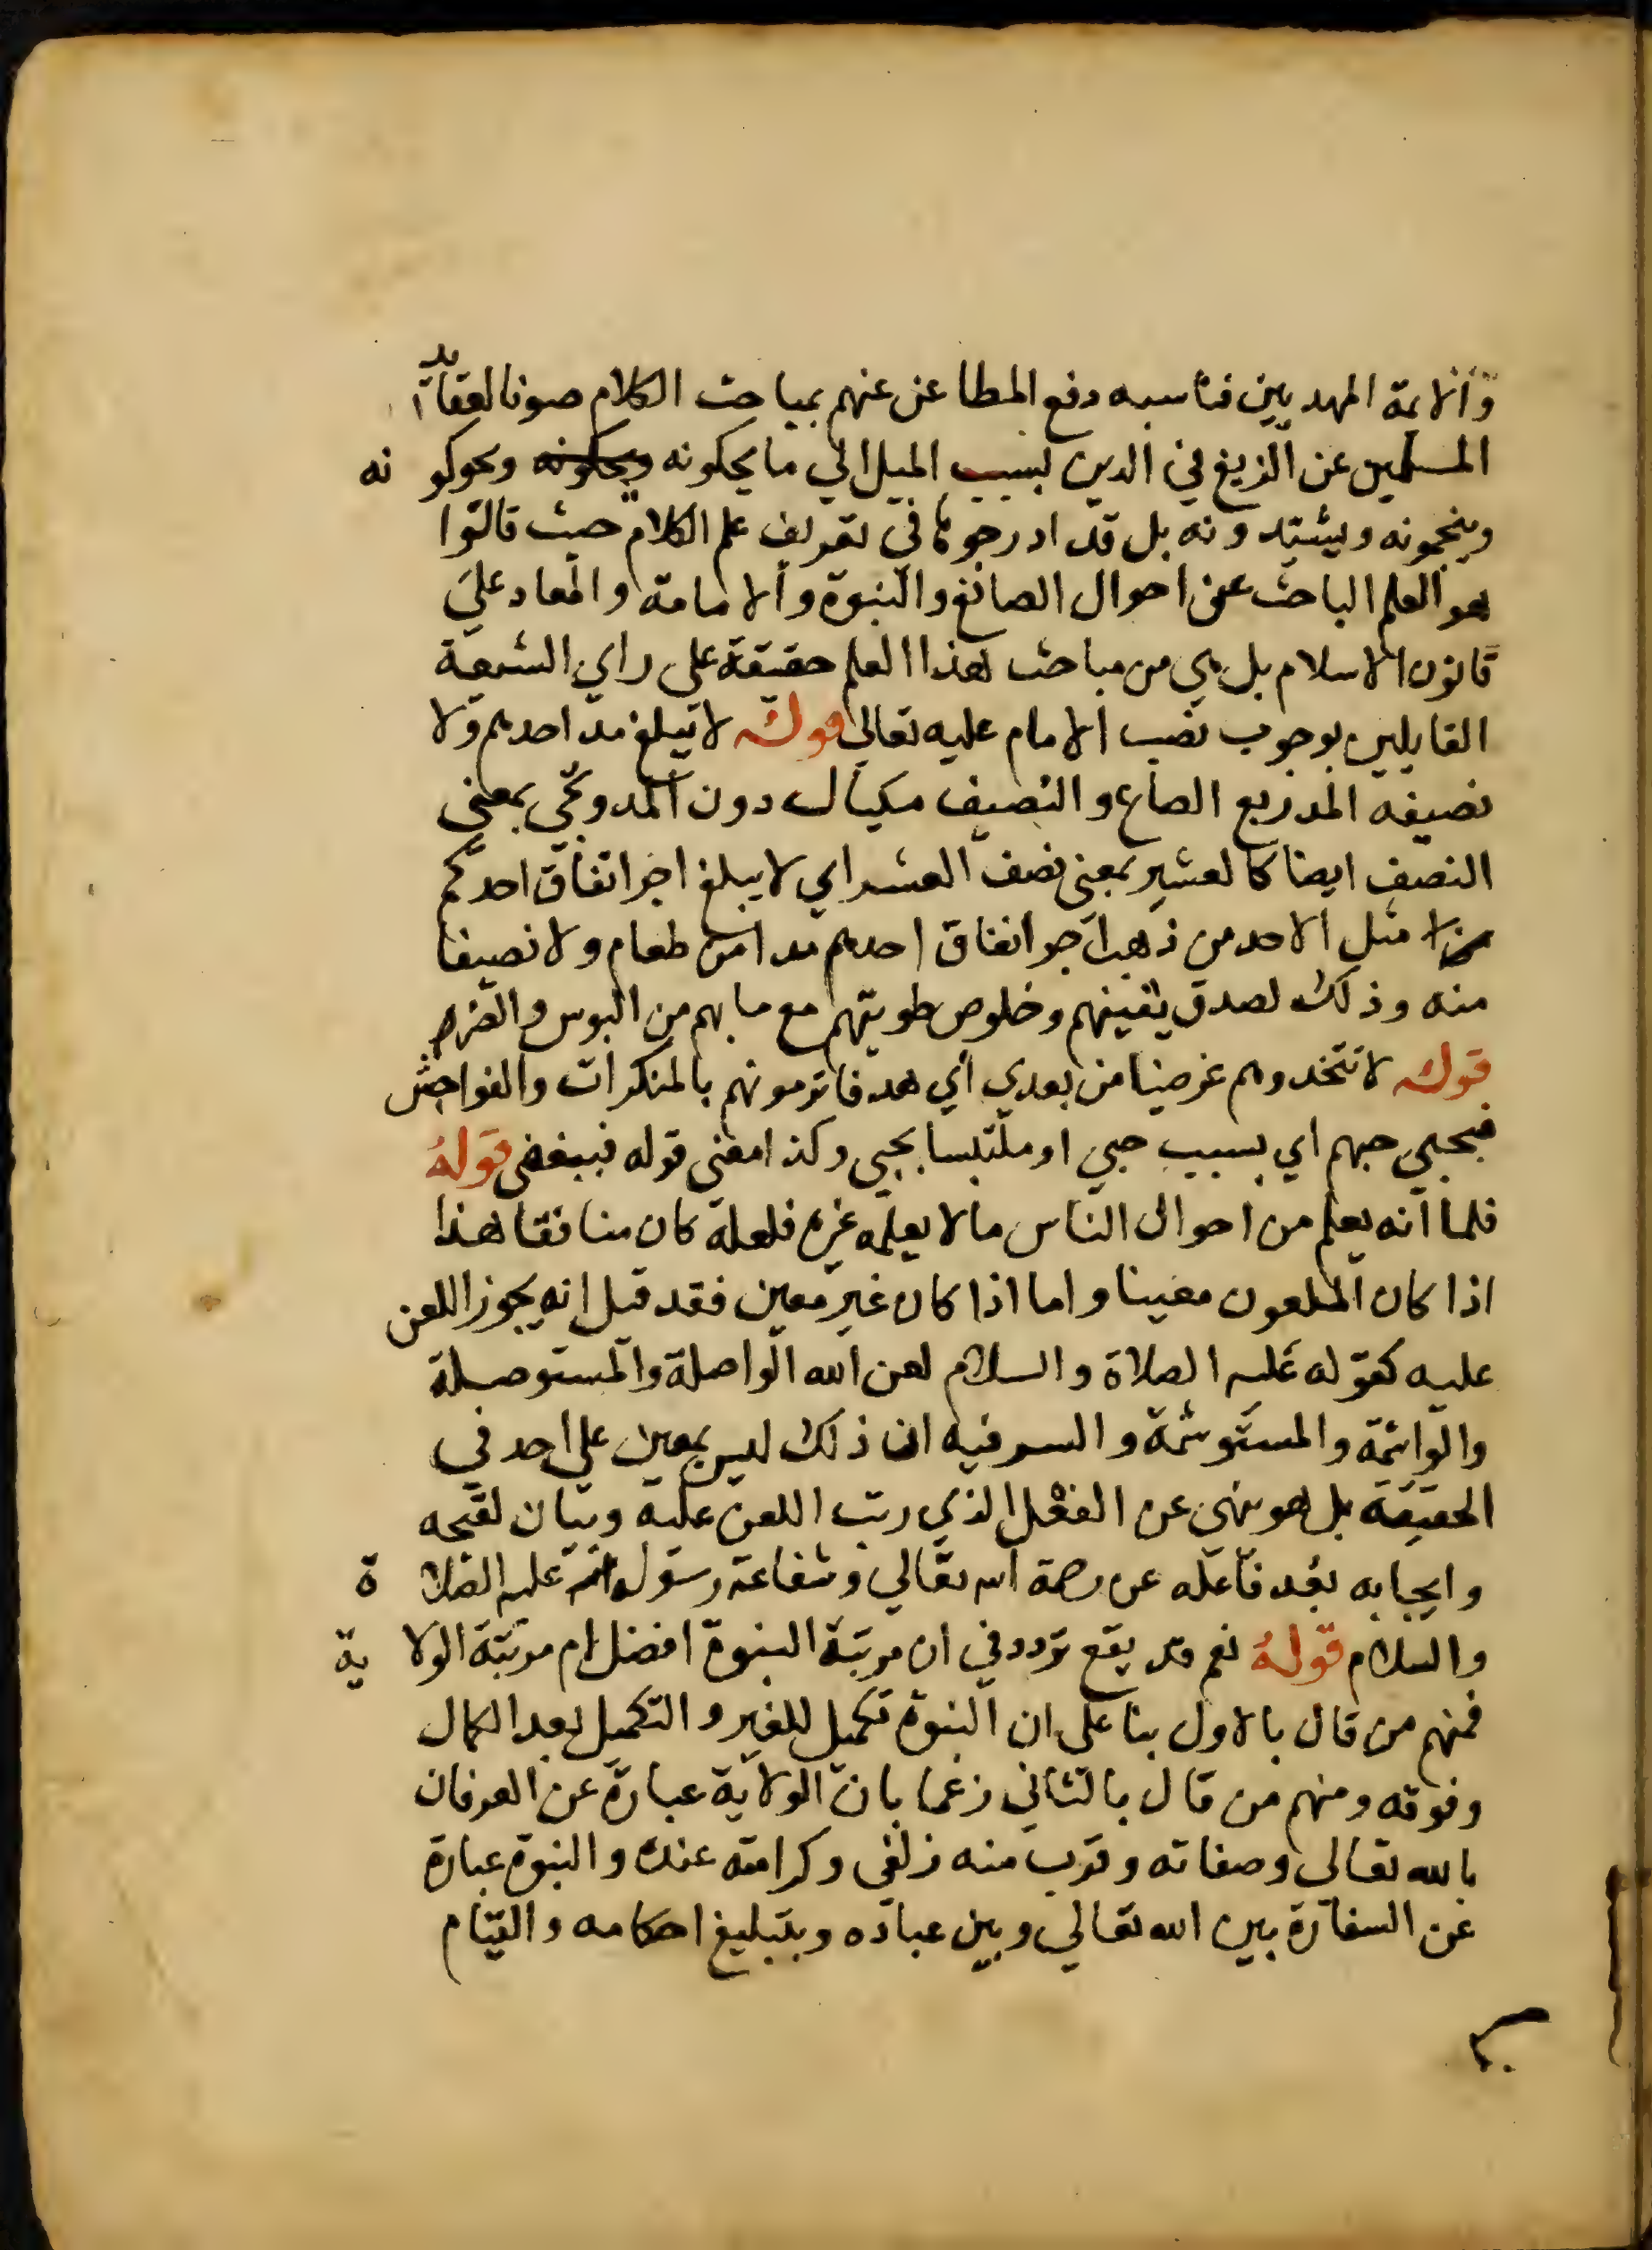 والايمة المهديين فناسبه دفع المطاعن عنهم بمباحث الكلام صونا لعقايد
المسلمين عن الزيغ في الدين بسبب الميل الي ما يحكونه ويحكونه ويحوكونه
وينحمونه ويشيدونه بل قد ادرجوها في تعريف علم الكلام حيث قالوا
هو العلم الباحث عن احوال الصانع والنبوة والامامة والمعاد علي
قانون الاسلام بل هي من مباحث هذا العلم حقيقة على راي الشيعة
القايلين بوجوب نصب الامام عليه تعالي قوله لا تبلغ مد احدهم ولا
نصيفه المد ربع الصاع والنصيف مكيال دون المد ويجي بمعني
النصف ايضا كالعشير بمعنى نصف العشر اي لا يبلغ اجر انفاق احدكم
مثل الاحد من ذهب اجر انفاق احدهم مدا من طعام ولا نصيفا
منه وذلك لصدق يقينهم وخلوص طويتهم مع ما بهم من البوس والضر
قوله لا تتخذوهم غرضا من بعدي اي هدفا ترمونهم بالمنكرات والفواحش
فبحبي حبهم اي بسبب حبي او ملتبسا بحبي وكذا معنى قوله فببغضى قوله
فلما انه يعلم من احوال الناس ما لا يعلمه غيره فلعله كان منافقا هذا
اذا كان الملعون معينا واما اذا كان غير معين فقد قيل انه يجوز اللعن
عليه كقوله عليه الصلاة والسلام لعن الله الواصلة والمستوصلة
والواشمة والمستوشمة والسر فيه ان ذلك ليس بمعين علي احد في
الحقيقة بل هو نهى عن الفعل الذي رتب اللعن عليه وبيان لقبحه
وايجابه بعد فاعله عن رحمة الله تعالي وشفاعة رسوله عليه الصلاة
والسلام قوله نعم قد يقع تردد في ان مرتبة النبوة افضل ام مرتبة الولاية
فمنهم من قال بالاول بنا على ان النبوة تكميل للغير والتكميل بعد الكمال
وفوقه ومنهم من قال بالثاني زعما بان الولاية عبارة عن العرفان
بالله تعالى وصفاته وقرب منه زلفى وكرامة عنده والنبوة عبارة
عن السفارة بين الله تعالي وبين عباده وبتبليغ احكامه والقيام